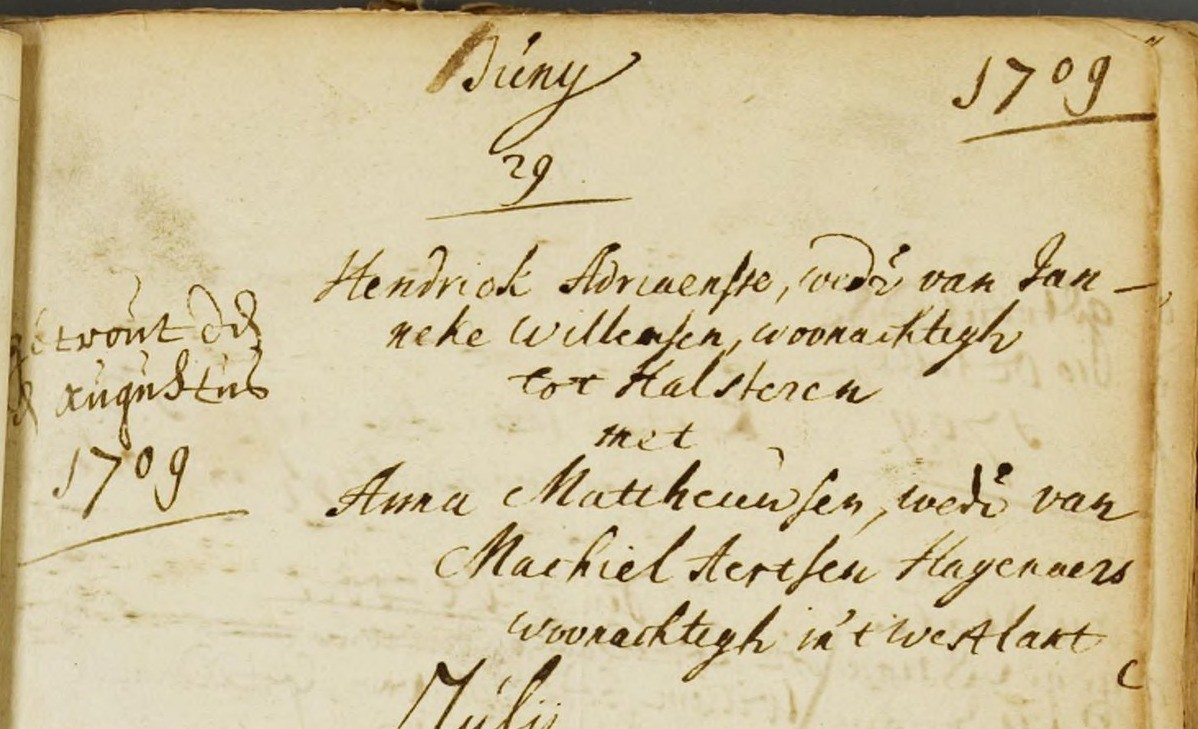 Juny 1709
29
Hendrick Adriaensse, wedr van Jan-
neke Willemsen, woonachtigh
tot Halsteren
met
Anna Mattheeuwsen, wede van
Machiel Aertsen Hagenaers
woonachtigh in't westlant
getrout de
augustus
1709
July